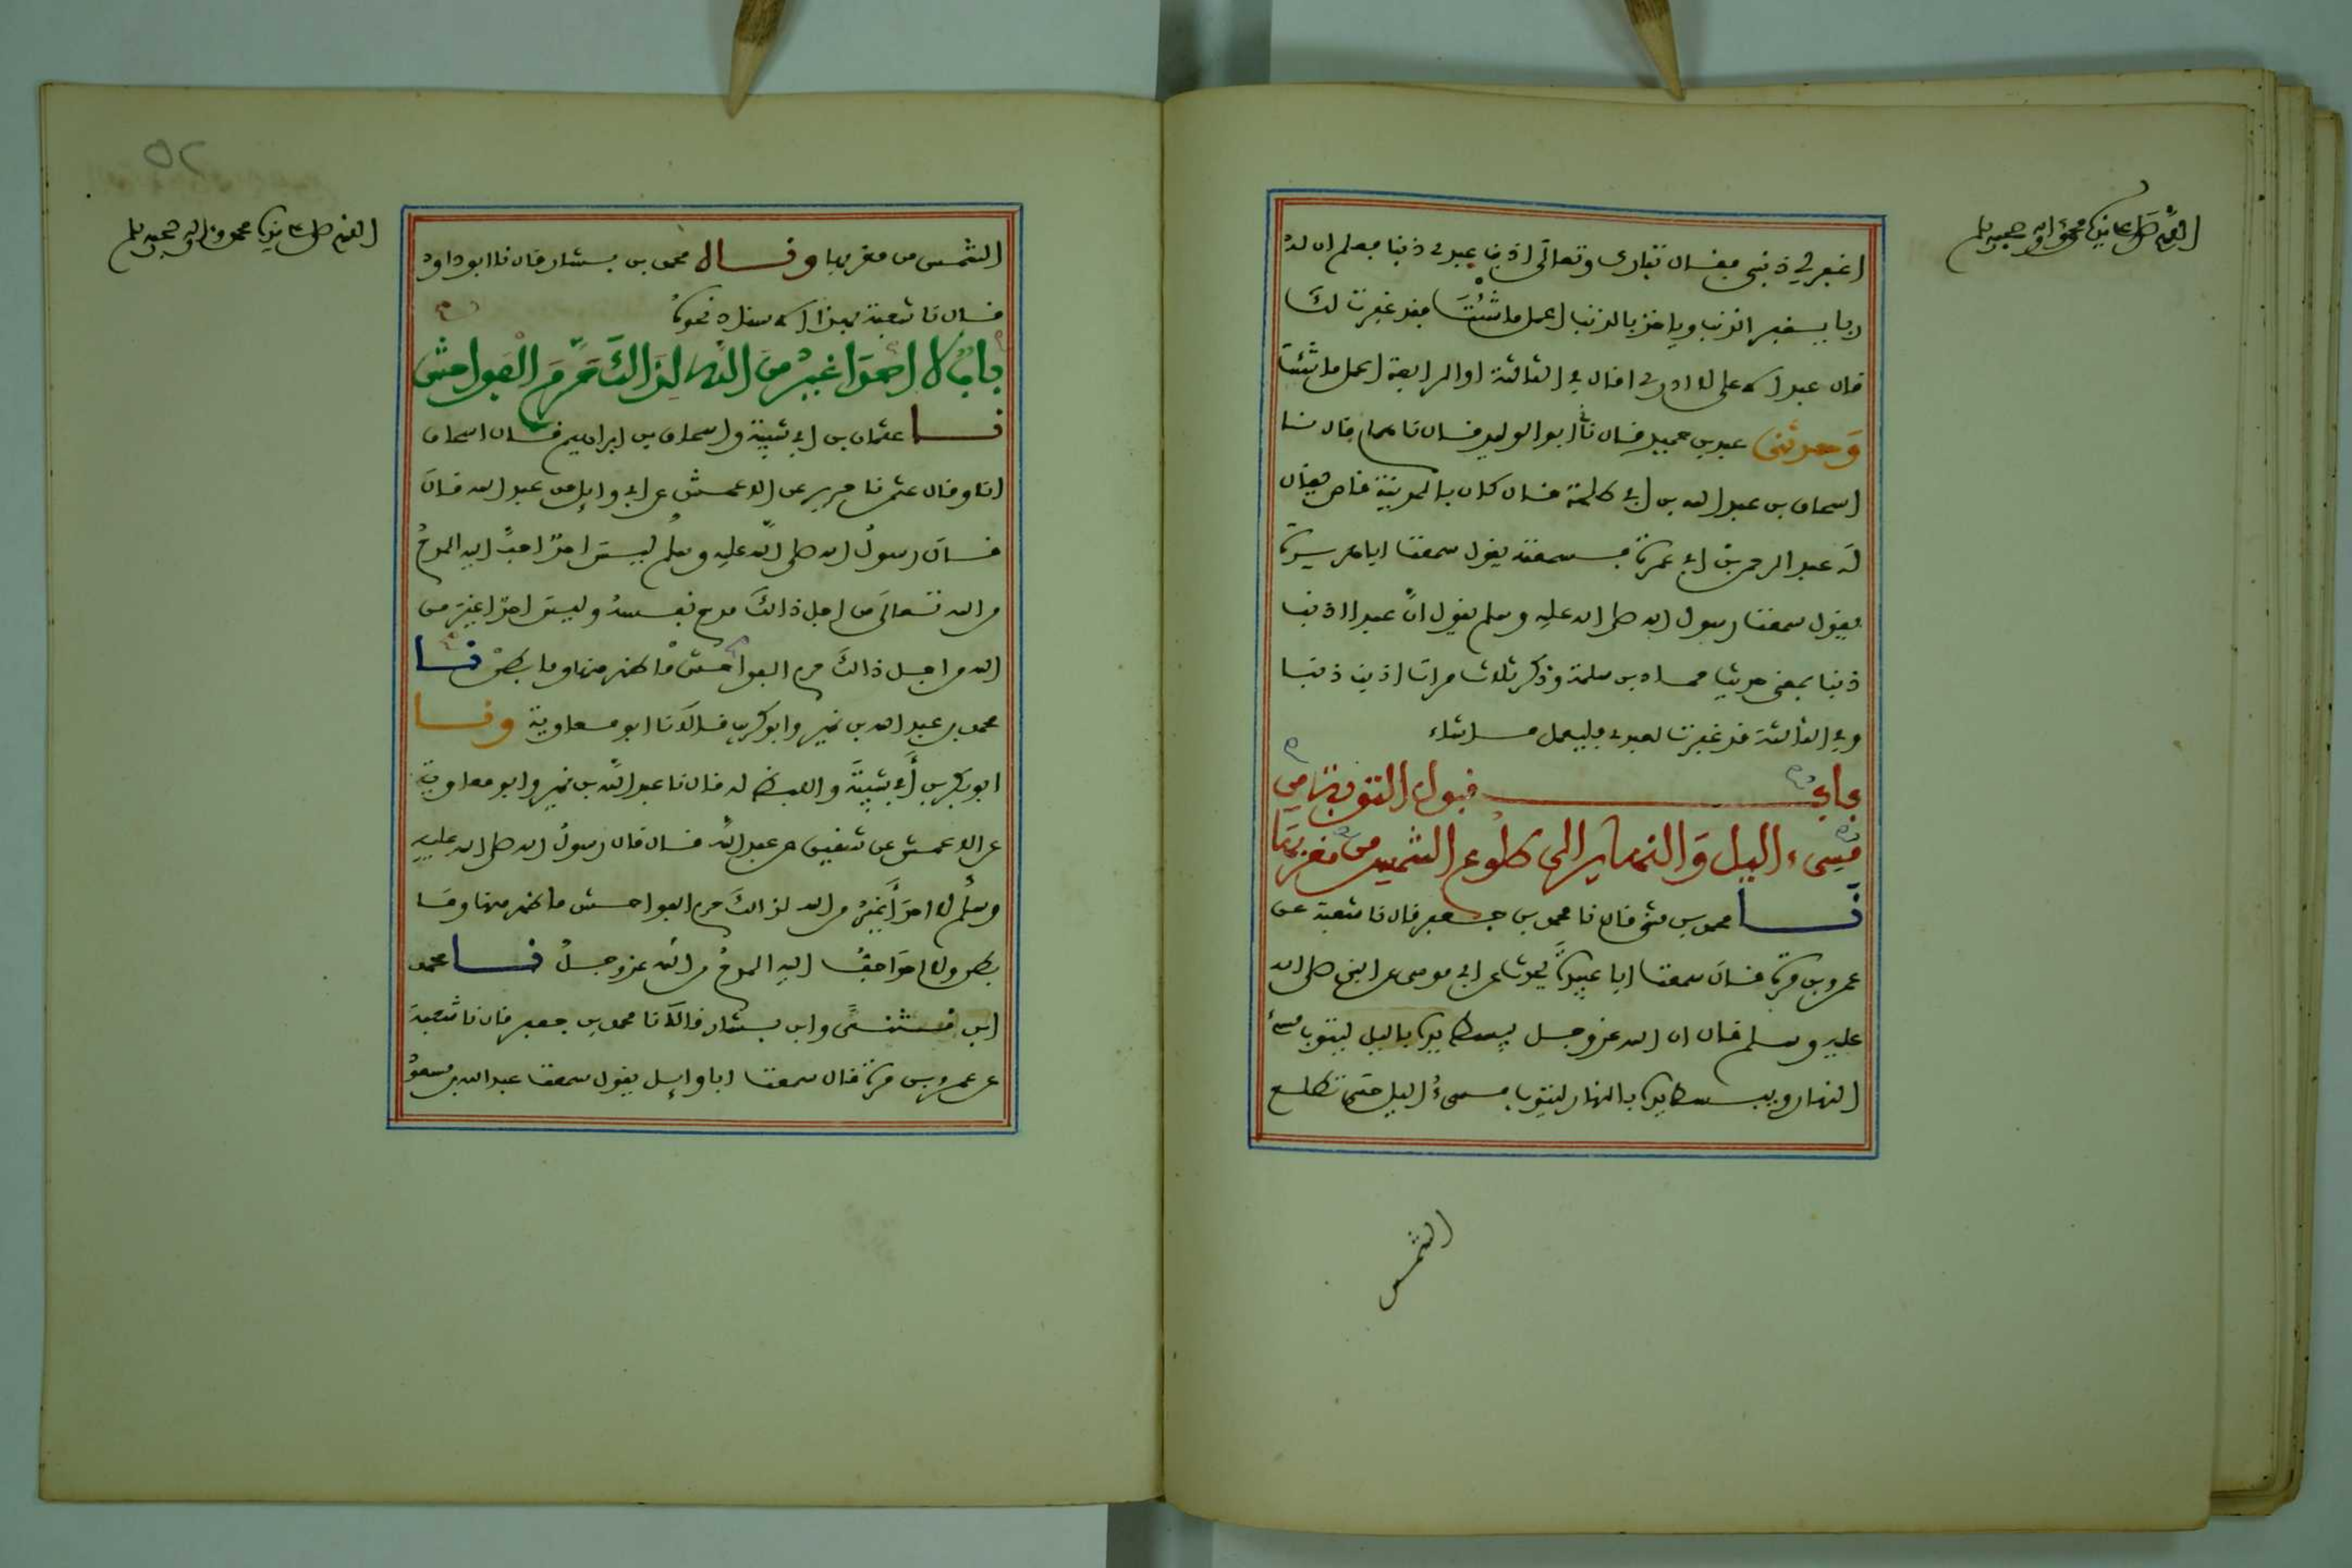 اللهم صل على سيدنا محمد وآله وصحبه وسلم
اغفر لي ذنبي فقال تبارك وتعالى اذنب عبدي ذنبا فعلم ان له
ربا يغفر الذنب وياخذ بالذنب اعمل ما شئت فقد غفرت لك
قال عبد الاعلى لا ادري اقال في الثالثة او الرابعة اعمل ما شئت
وحدثني عبد بن حميد قال نا ابو الوليد قال نا همام قال نا
اسحاق بن عبد الله بن ابي طلحة قال كان بالمدينة قاص يقال
له عبد الرحمن بن ابي عمرة فسمعته يقول سمعت ابا هريرة
يقول سمعت رسول الله صلى الله عليه وسلم يقول ان عبدا اذنب
ذنبا بمعنى حديث حماد بن سلمة وذكر ثلاث مرات اذنب ذنبا
وفي الثالثة قد غفرت لعبدي فليعمل ما شاء
باب قبول التوبة من
مسيء الليل والنهار الى طلوع الشمس من مغربها
نا محمد بن مثنى قال نا محمد بن جعفر قال نا شعبة عن
عمرو بن مرة قال سمعت ابا عبيدة يحدث عن ابي موسى عن النبي صلى الله
عليه وسلم قال ان الله عز وجل يبسط يده بالليل ليتوب مسيء
النهار ويبسط يده بالنهار ليتوب مسيء الليل حتى تطلع
الشمس
٥٢
اللهم صل على سيدنا محمد وآله وصحبه وسلم
الشمس من مغربها وقال محمد بن بشار قال نا ابو داود
قال نا شعبة بهذا الاسناد نحوه
باب لا احد اغير من الله لذالك حرم الفواحش
نا عثمان بن ابي شيبة واسحاق بن ابراهيم قال اسحاق
انا وقال عثمن نا جرير عن الاعمش عن ابي وايل عن عبد الله قال
قال رسول الله صلى الله عليه وسلم ليس احد احب اليه المدح
من الله تعالى من اجل ذالك مدح نفسه وليس احد اغير من
الله من اجل ذالك حرم الفواحش ما ظهر منها وما بطن نا
محمد بن عبد الله بن نمير وابو كريب قالا نا ابو معاوية ونا
ابو بكر بن ابي شيبة واللفظ له قال نا عبد الله بن نمير وابو معاوية
عن الاعمش عن شقيق عن عبد الله قال قال رسول الله صلى الله عليه
وسلم لا احد اغير من الله لذالك حرم الفواحش ما ظهر منها وما
بطن ولا احد احب اليه المدح من الله عز وجل نا محمد
ابن مثنى وابن بشار قالا نا محمد بن جعفر قال نا شعبة
عن عمرو بن مرة قال سمعت ابا وايل يقول سمعت عبد الله بن مسعود